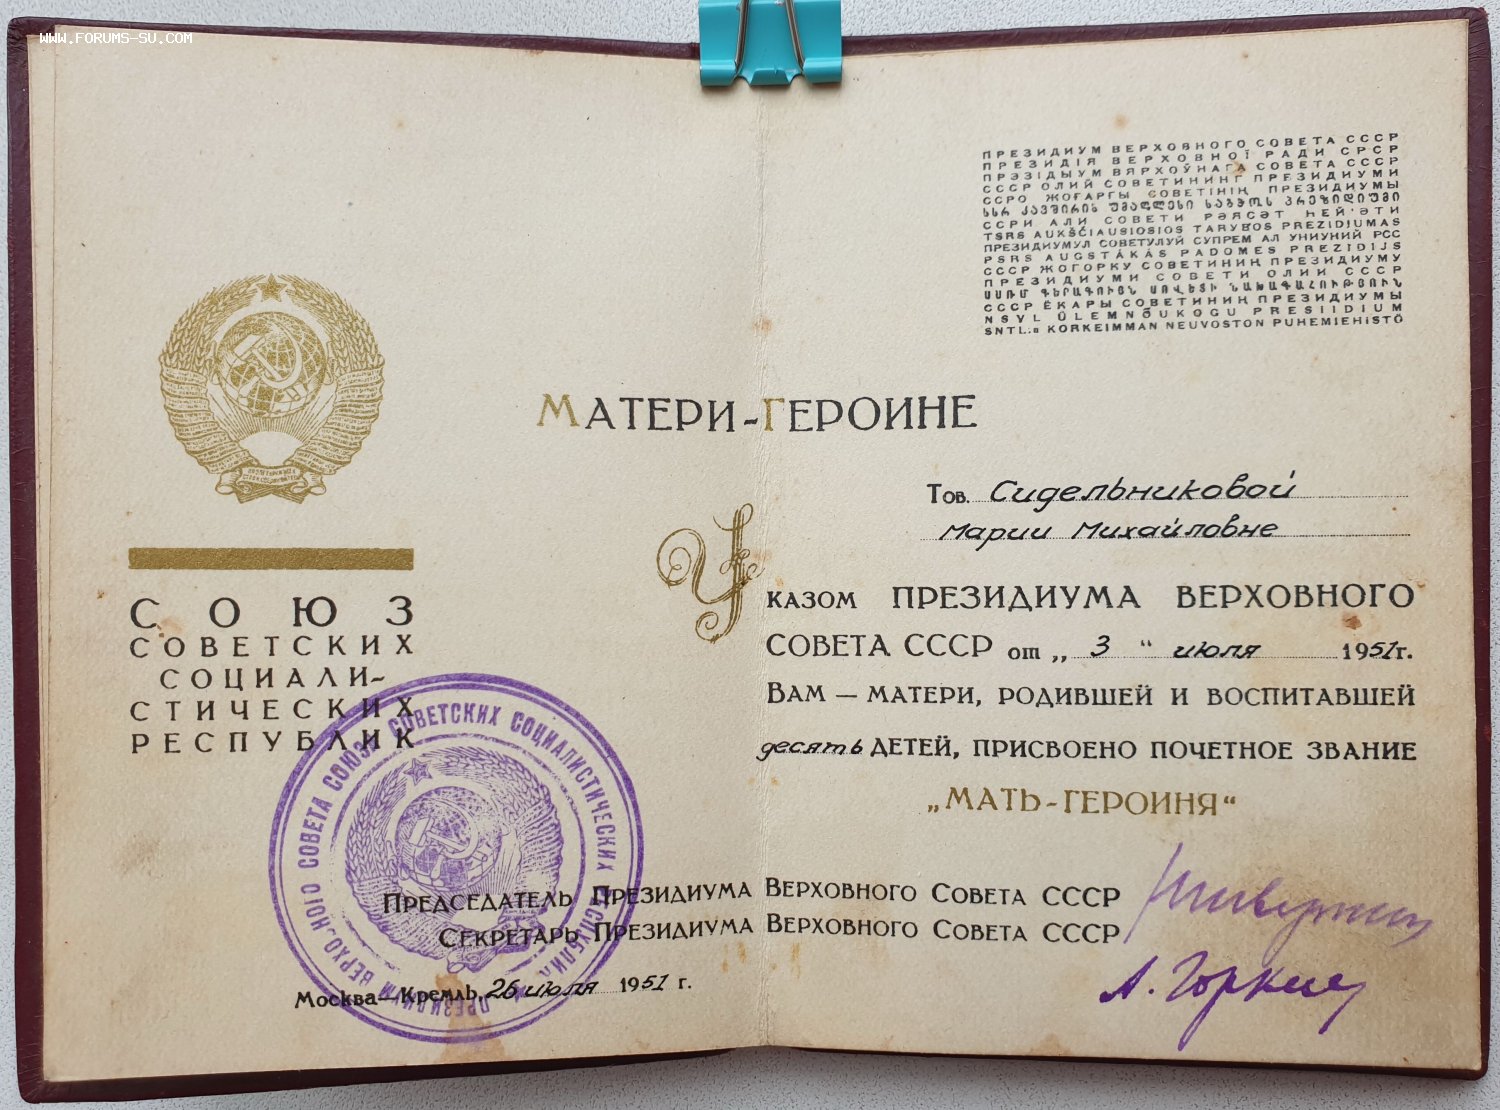 WWW.FORUMS-SU.COM
ПРЕЗИДИУМ ВЕРХОВНОГО СОВЕТА СССР
ПРЕЗИДІЯ ВЕРХОВНОЇ РАДИ СРСР
ПРЭЗІДЫУМ ВЯРХОЎНАГА СОВЕТА СССР
СССР ОЛИЙ СОВЕТИНИНГ ПРЕЗИДИУМИ
ССРО ЖОҒАРҒЫ СОВЕТІНІҢ ПРЕЗИДИУМЫ
ᲡᲡᲠ ᲙᲐᲕᲨᲘᲠᲘᲡ ᲣᲛᲐᲦᲚᲔᲡᲘ ᲡᲐᲑᲭᲝᲡ ᲞᲠᲔᲖᲘᲓᲘᲣᲛᲘ
ССРИ АЛИ СОВЕТИ РӘЯСӘТ ҺЕЙ'ӘТИ
TSRS AUKŠČIAUSIOSIOS TARYBOS PREZIDIUMAS
ПРЕЗИДИУМУЛ СОВЕТУЛУЙ СУПРЕМ АЛ УНИУНИЙ РСС
PSRS AUGSTĀKĀS PADOMES PREZIDIJS
СССР ЖОГОРКУ СОВЕТИНИҢ ПРЕЗИДИУМУ
ПРЕЗИДИУМИ СОВЕТИ ОЛИИ СССР
ՍՍՌՄ ԳԵՐԱԳՈՒՅՆ ՍՈՎԵՏԻ ՆԱԽԱԳԱՀՈՒԹՅՈՒՆ
СССР ЁКАРЫ СОВЕТИНИҢ ПРЕЗИДИУМЫ
NSVL ÜLEMNÕUKOGU PRESIIDIUM
SNTL:n KORKEIMMAN NEUVOSTON PUHEMIEHISTÖ
МАТЕРИ-ГЕРОИНЕ
Тов. Сидельниковой
Марии Михайловне
УКАЗОМ ПРЕЗИДИУМА ВЕРХОВНОГО
СОВЕТА СССР от „ 3 “ июля 1951 г.
ВАМ — МАТЕРИ, РОДИВШЕЙ И ВОСПИТАВШЕЙ
десять ДЕТЕЙ, ПРИСВОЕНО ПОЧЕТНОЕ ЗВАНИЕ
„МАТЬ-ГЕРОИНЯ“
СОЮЗ
СОВЕТСКИХ
СОЦИАЛИ-
СТИЧЕСКИХ
РЕСПУБЛИК
ПРЕЗИДИУМ ВЕРХОВНОГО СОВЕТА СОЮЗА СОВЕТСКИХ СОЦИАЛИСТИЧЕСКИХ РЕСПУБЛИК
ПРЕДСЕДАТЕЛЬ ПРЕЗИДИУМА ВЕРХОВНОГО СОВЕТА СССР
Н Шверник
СЕКРЕТАРЬ ПРЕЗИДИУМА ВЕРХОВНОГО СОВЕТА СССР
А. Горкин
Москва—Кремль, 26 июля 1951 г.